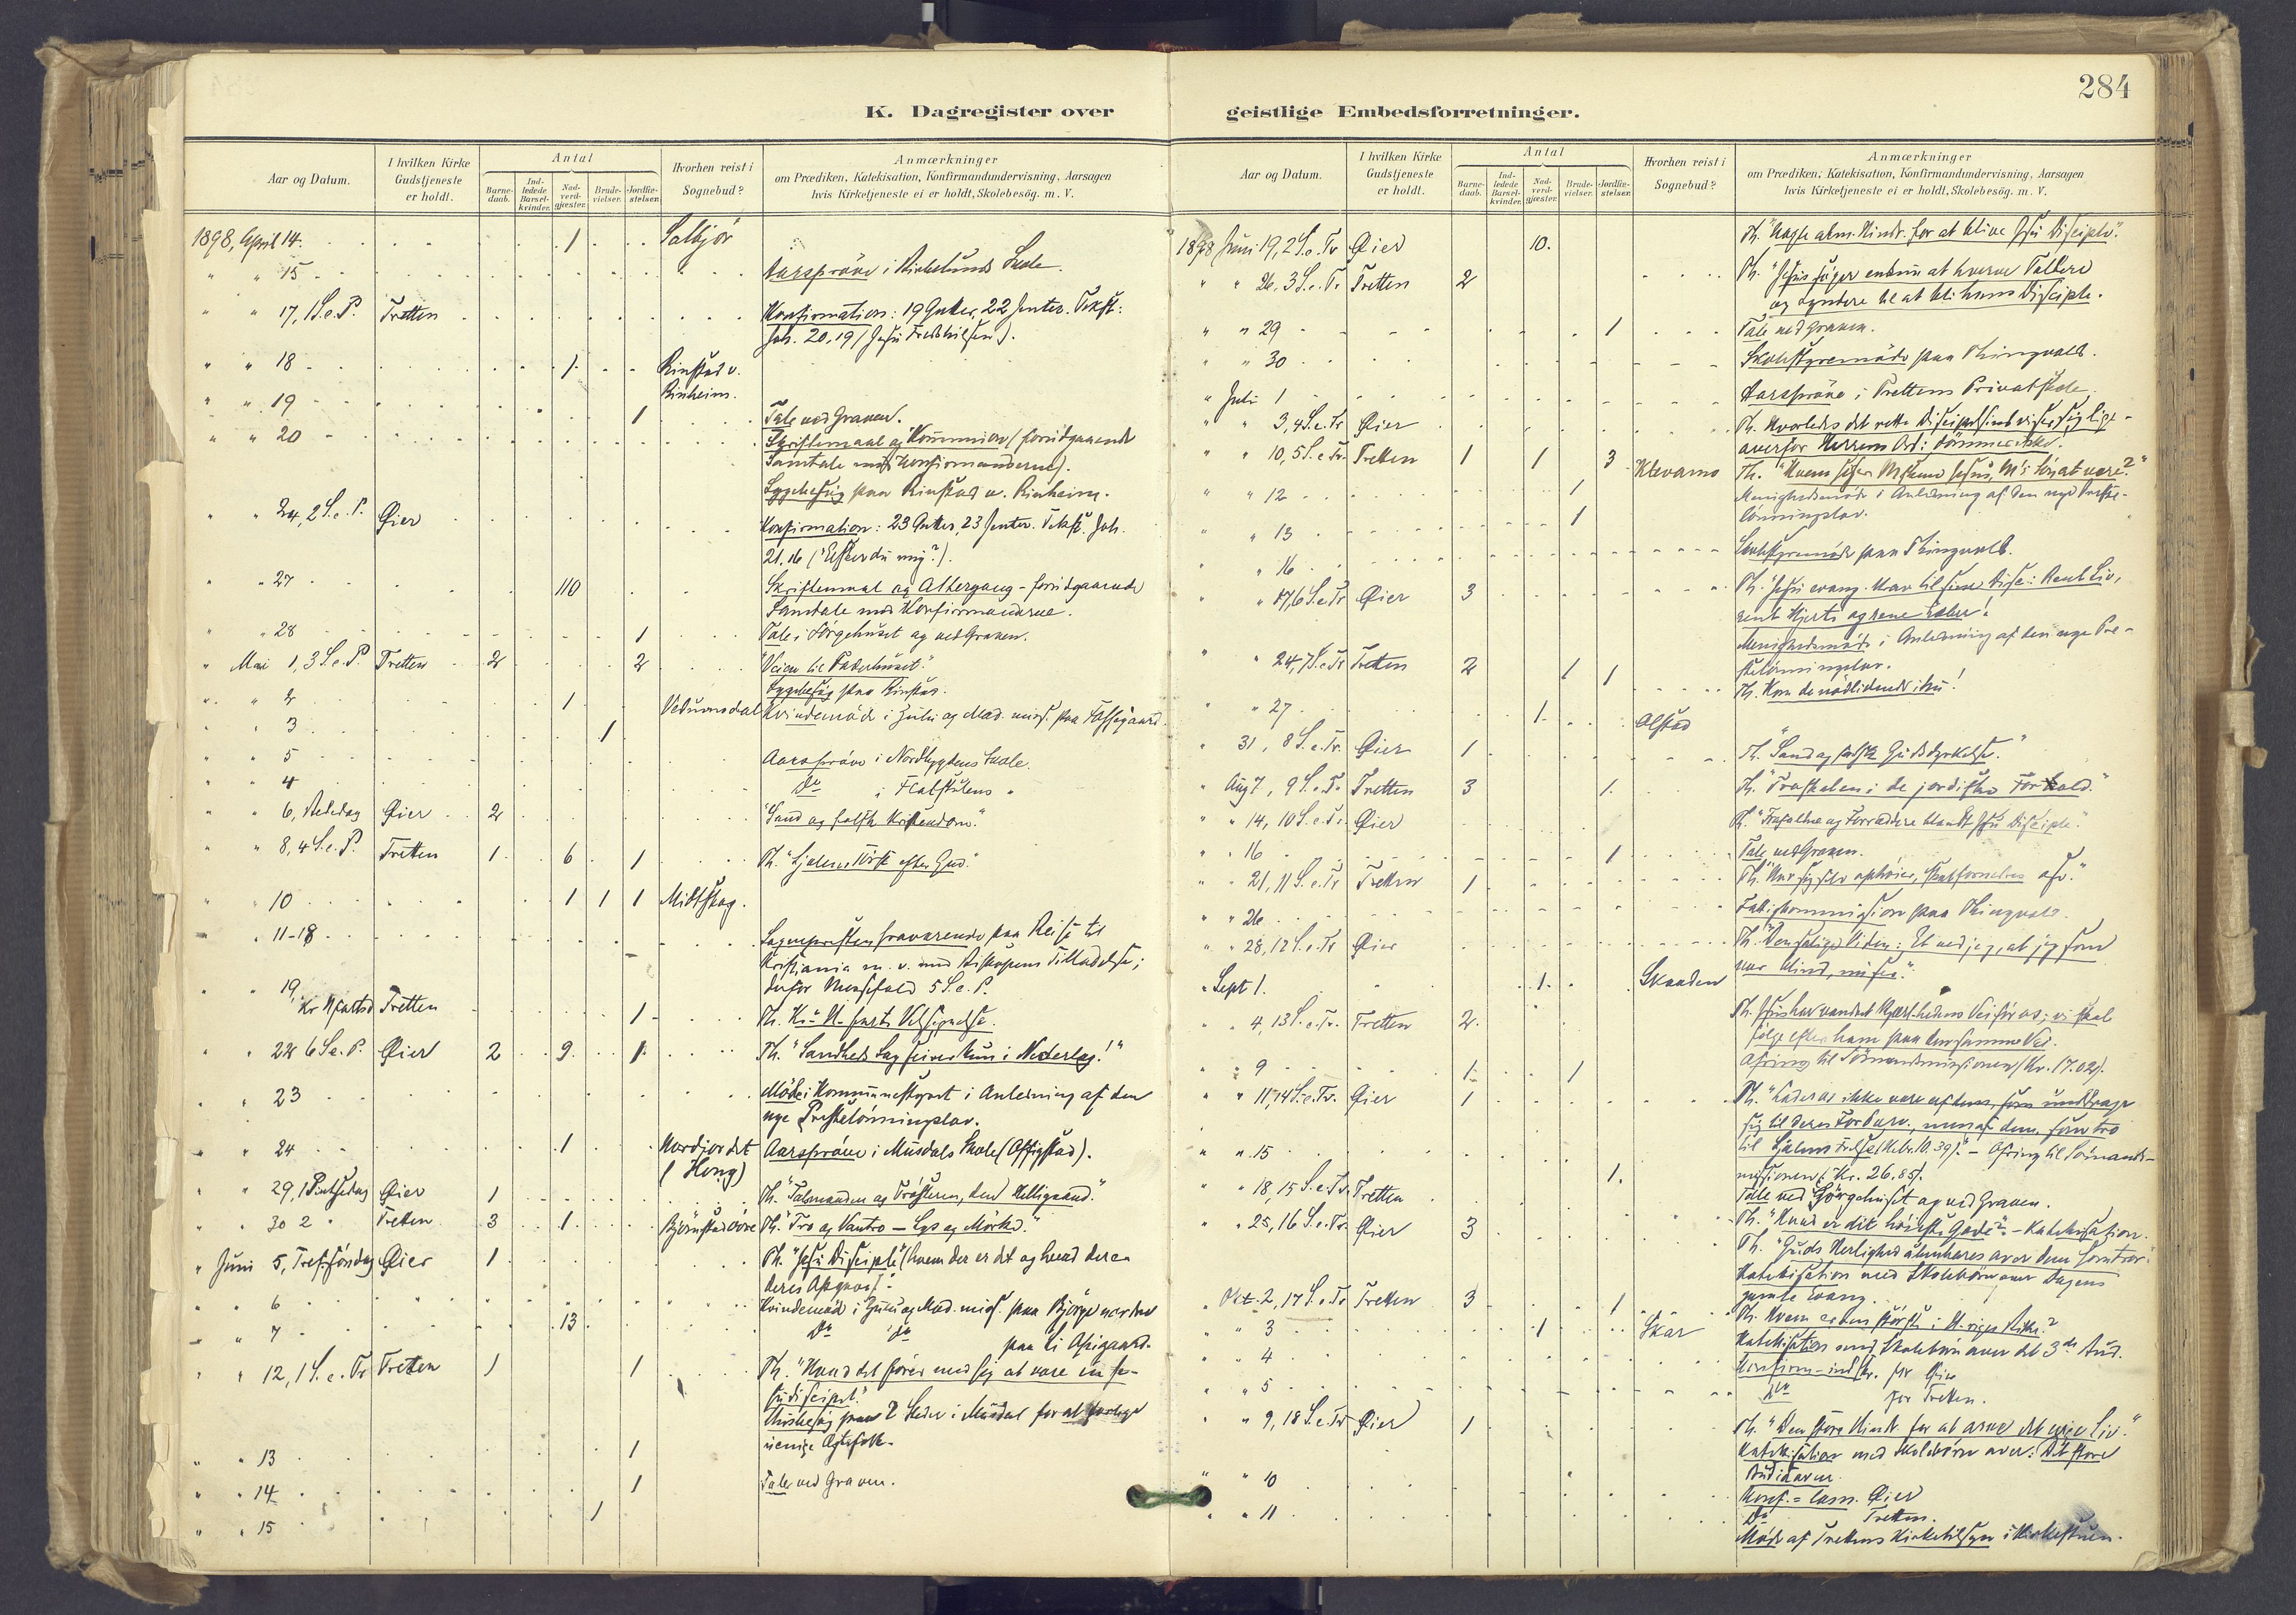 284
K. Dagregister over geistlige Embedsforretninger.
Aar og Datum.
I hvilken Kirke
Gudstjeneste
er holdt.
Antal
Barne-
daab.
Ind-
ledede
Barsel-
kvinder.
Nad-
verd-
gjæster.
Brude-
vielser.
Jordfæ-
stelser.
Hvorhen reist i
Sognebud?
Anmærkninger
om Prædiken, Katekisation, Konfirmandundervisning, Aarsagen
hvis Kirketjeneste ei er holdt, Skolebesög. m. V.
1898, April 14. 1 Solbjör
" " 15 Aarspröve i Kirkelunds Skole.
" " 17, 1 S. e. P. Tretten Konfirmation: 19 Gutter, 22 Jenter. Tekst:
Joh. 20, 19 (Jesu Fredshilsen).
" " 18 1 Rinstad v.
Rinheim.
" " 19 1 Tale ved Graven.
" " 20 Skriftemaal og Kommunion (forudgaaende
Samtale med Konfirmanderne).
Sygebesøg paa Rinstad v. Rinheim.
" " 24, 2 S. e. P. Öier Konfirmation: 23 Gutter, 23 Jenter. Tekst. Joh.
21.16 ("Elsker du mig?").
" " 27 110 Skriftemaal og Altergang - forudgaaende
Samtale med Konfirmanderne.
" " 28 1 Tale i Sörgehuset og ved Graven.
" Mai 1, 3 S. e. P. Tretten 2 2 "Veien til Faderhuset."
Sygebesög paa Rinstad.
" " 2 1 Vedumsdal Kvindemöde i Zulu og Mad. miss. paa
" " 3 1
" " 5 Aarspröve i Nordbygdens Skole.
" " 4 Do i Flatskulens "
" " 6, Bededag Öier 2 "Sand og falsk Kristendom."
" " 8, 4 S. e. P. Tretten 1 6 1 Th. "Sjælens Törst efter Gud."
" " 10 1 1 1 Midtskog.
" " 11-18 Sognepresten fraværende paa Reise til
Kristiania m. v. med Biskopens Tilladelse;
derfor Messefald 5 S. e. P.
" " 19
Kr. Hfartsd Tretten 1 Th. Kr. H-farts Velsignelse.
" " 22 6 S. e. P. Öier 2 9 1 Th. "Sandheds Sag seirer kun i Nederlag!"
" " 23 Möde i Kommunestyret i Anledning af den
nye Prestelönningslov.
" " 24 1 Nordjordet
(Hong) Aarspröve i Musdals Skole (Offigstad).
" " 29, 1 Pintsedag Öier 1 Th. "Talsmanden og Trösteren, den Helligaand."
" " 30 2 " Tretten 3 1 Björnstad övre Th. "Tro og Vantro — Lys og Mörke."
" Juni 5, Tref. söndag Öier 1 Th. "Jesu Disciple" (hvem der er det og hvad der er
deres Opgave).
" " 6 Kvindemöde i Zulu og Mad. miss. paa Björge nordre
" " 7 13 Do do paa Li
" " 12, 1 S. e. Tr Tretten 1 1 Th. "Hvad det förer med sig at være en Je-
su Discipel."
Husbesög paa 2 Steder i Musdal for at forlige
uenige Ægtefolk.
" " 13 1
" " 14 1 Tale ved Graven.
" " 15 1
Aar og Datum.
I hvilken Kirke
Gudstjeneste
er holdt.
Antal
Barne-
daab.
Ind-
ledede
Barsel-
kvinder.
Nad-
verd-
gjæster.
Brude-
vielser.
Jordfæ-
stelser.
Hvorhen reist i
Sognebud?
Anmærkninger
om Prædiken, Katekisation, Konfirmandundervisning, Aarsagen
hvis Kirketjeneste ei er holdt, Skolebesög. m. V.
1898 Juni 19, 2 S. e. Tr Öier 10. Th. "Nogle alm. Hindr. for at blive Jesu Disciple."
" " 26, 3 S. e. Tr Tretten 2 Th. "Jesus söger endnu at hverve Toldere
og Syndere til at bli hans Disciple.
" " 29 1 Tale ved Graven.
" " 30 Skolestyremöde paa Thingvold.
" Juli 1 Aarspröve i Trettens Privatskole.
" " 3, 4 S. e. Tr Öier Th. Hvorledes det rette Discipelsind viser sig lige-
overfor Herrens Ord:
" " 10, 5 S. e. Tr. Tretten 1 1 3 Klevamo Th. "Hvem siger Msskene Jesus, M's Sön at være?"
" " 12 1 Menighedsmöde i Anledning af den nye Preste-
lönningslov.
" " 13 1
" " 16 Skolestyremöde paa Thingvold.
" " 17, 6 S. e. Tr Öier 3 Th. "Jesu evang. Krav til sine Disc.: Rent Liv,
rent Hjerte og rene Læber!
Menighedsmöde i Anledning af den nye Pre-
stelönningslov.
" " 24, 7 S. e. Tr Tretten 2 1 1 Th. Kom de nödlidende ihu!
" " 27 1 Olstad
" 31, 8 S. e. Tr. Öier 1 Th. "Sand og falsk Gudsdyrkelse."
" Aug 7, 9 S. e. Tr Tretten 3 1. Th. "Troskaben i de jordiske Forhold."
" " 14, 10 S. e. Tr. Öier Th. "Frafaldne og Forrædere blandt Jesu Disciple."
" " 16 1 Tale ved Graven.
" " 21, 11 S. e. Tr Tretten 1 Th. "Hver sig selv ophöier, skal fornedres osv."
" " 26 Fattigkommission paa Thingvold.
" " 28, 12 S. e. Tr Öier Th. "Den salige Viden: Et ved jeg, at jeg som
var blind, nu ser."
" Sept 1. 1 Skaaden
" " 4, 13 S. e. Tr. Tretten 2. Th. Jesus har vandret Kjærlighedens Vei for os; vi skal
fölge efter ham paa den samme Vei.
Ofring til Sömandsmissionen (Kr. 17.02).
" " 9 1 1
" " 11, 14 S. e. Tr. Öier 1 Th. "Lader os ikke være af dem, som unddrage
sig til deres Fordærv., men af dem, som tro
til Sjælens Frelse (Hebr. 10.39)." - Ofring til Sömands-
missionen (Kr. 26.85).
" " 15 1. Tale ved Sörgehuset og ved Graven.
" " 18, 15 S. e. Tr. Tretten Th. "Hvad er dit höieste Gode?" - Katekisation.
" " 25, 16 S. e. Tr. Öier 3 Th. "Guds Herlighed aabenbares over dem som tror."
Katekisation med Skolebörn over Dagens
gamle Evang.
" Okt. 2, 17 S. e. Tr Tretten 3 1 Th. Hvem er den störste i H. riges Rike?
Katekisation med Skolebörn over det 3de Bud.
" " 3 1 Skar
" " 4 Konfirm-indskr. for Öier
" " 5 Do for Tretten.
" " 9, 18 S. e. Tr Öier 1 Th. "Den störe Hindr. for at arve det evige Liv."
Katekisation med Skolebörn over: Det store
Budi Loven.
" " 10 Konf.-læsn. Öier
" " 11 Do Tretten.
Möde af Trettens Kirketilsyn i Kirkestuen.